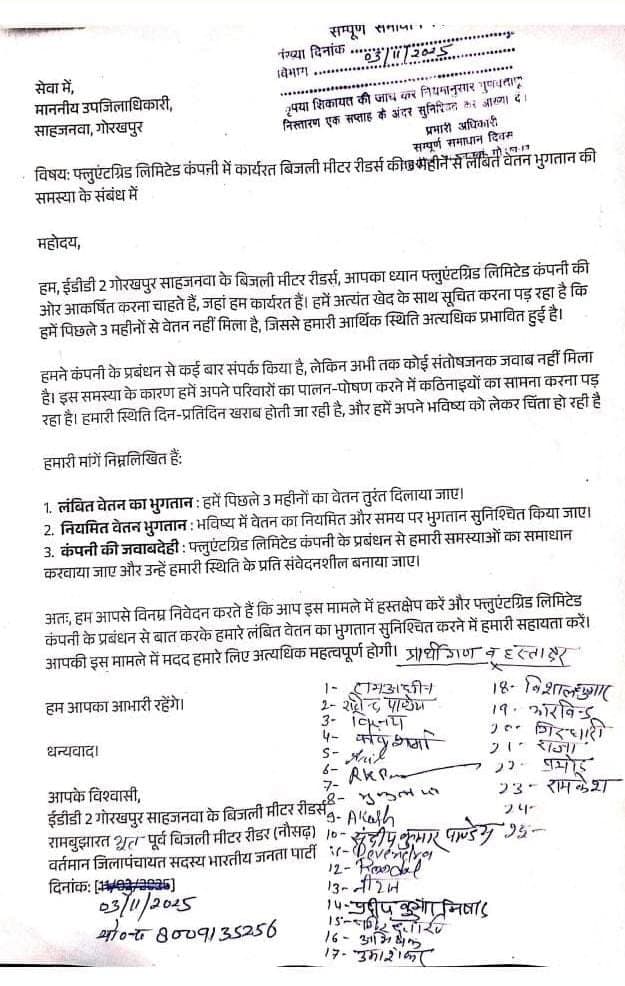 सम्पूर्ण समाधान
संख्या दिनांक 03/11/2025
विभाग
कृपया शिकायत की जाच कर नियमानुसार गुणवत्तापूर्ण
निस्तारण एक सप्ताह के अंदर सुनिश्चित कर आख्या दें।
प्रभारी अधिकारी
सम्पूर्ण समाधान दिवस
सेवा में,
माननीय उपजिलाधिकारी,
साहजनवा, गोरखपुर
विषय: फ्लुएंटग्रिड लिमिटेड कंपनी में कार्यरत बिजली मीटर रीडर्स की महीने से लंबित वेतन भुगतान की
समस्या के संबंध में
महोदय,
हम, ईडीडी 2 गोरखपुर साहजनवा के बिजली मीटर रीडर्स, आपका ध्यान फ्लुएंटग्रिड लिमिटेड कंपनी की
ओर आकर्षित करना चाहते हैं, जहां हम कार्यरत हैं। हमें अत्यंत खेद के साथ सूचित करना पड़ रहा है कि
हमें पिछले 3 महीनों से वेतन नहीं मिला है, जिससे हमारी आर्थिक स्थिति अत्यधिक प्रभावित हुई है।
हमने कंपनी के प्रबंधन से कई बार संपर्क किया है, लेकिन अभी तक कोई संतोषजनक जवाब नहीं मिला
है। इस समस्या के कारण हमें अपने परिवारों का पालन-पोषण करने में कठिनाइयों का सामना करना पड़
रहा है। हमारी स्थिति दिन-प्रतिदिन खराब होती जा रही है, और हमें अपने भविष्य को लेकर चिंता हो रही है
हमारी मांगें निम्नलिखित हैं:
1. लंबित वेतन का भुगतान : हमें पिछले 3 महीनों का वेतन तुरंत दिलाया जाए।
2. नियमित वेतन भुगतान : भविष्य में वेतन का नियमित और समय पर भुगतान सुनिश्चित किया जाए।
3. कंपनी की जवाबदेही : फ्लुएंटग्रिड लिमिटेड कंपनी के प्रबंधन से हमारी समस्याओं का समाधान
करवाया जाए और उन्हें हमारी स्थिति के प्रति संवेदनशील बनाया जाए।
अतः, हम आपसे विनम्र निवेदन करते हैं कि आप इस मामले में हस्तक्षेप करें और फ्लुएंटग्रिड लिमिटेड
कंपनी के प्रबंधन से बात करके हमारे लंबित वेतन का भुगतान सुनिश्चित करने में हमारी सहायता करें।
आपकी इस मामले में मदद हमारे लिए अत्यधिक महत्वपूर्ण होगी। प्रार्थीगण व हस्ताक्षर
हम आपका आभारी रहेंगे।
धन्यवाद।
आपके विश्वासी,
ईडीडी 2 गोरखपुर साहजनवा के बिजली मीटर रीडर्स
रामबुझारत पूर्व बिजली मीटर रीडर (नौसढ़)
वर्तमान जिलापंचायत सदस्य भारतीय जनता पार्टी
दिनांक: [11/02/2025]
03/11/2025
मो०न० 8009135256
1-
2-
3-
4-
5-
6-
7- RKP
8-
9- Akash
10- संदीप कुमार पाण्डेय
11- Devendra
12-
13- नीरज
14- प्रदीप कुमार निषाद
15-
16- अभिषेक
17- उमाशंकर
18- विशाल कुमार
19- अरविन्द
20- गिरधारी
21- राजा
22- प्रमोद
23- रामकेश
24-
25-